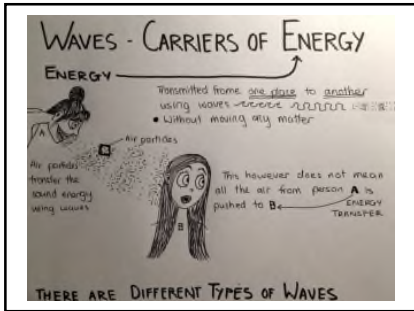 WAVES - CARRIERS OF ENERGY
ENERGY
Transmitted frome one place to another
using waves
• Without moving any matter
Air particles
Air particles
transfer the
sound energy
using waves
This however does not mean
all the air from person A is
pushed to B
ENERGY
TRANSFER
B
THERE ARE DIFFERENT TYPES OF WAVES